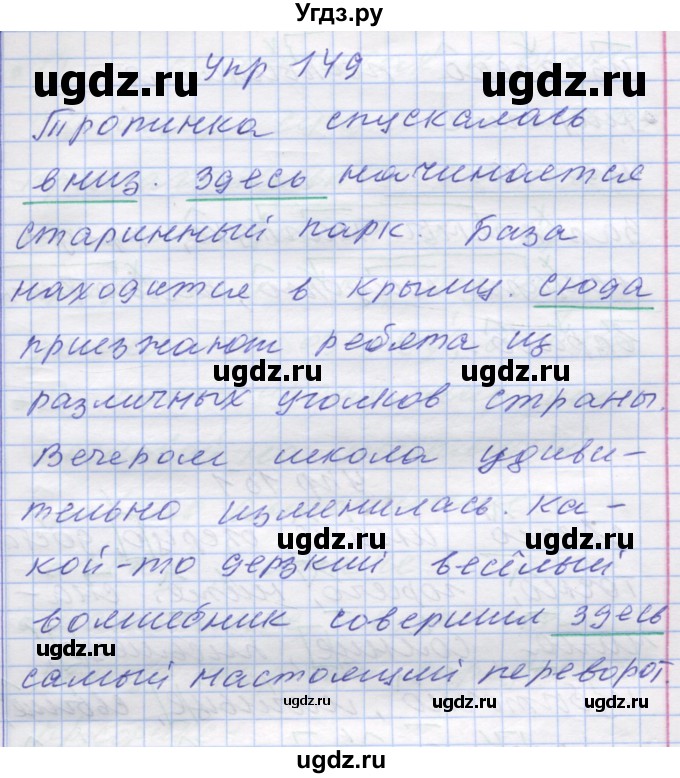 Угдз.ру
упр 149
ugdz.ru ugdz.ru
Тропинка спускалась
вниз. Здесь начинается
ugdz.ru ugdz.ru
старинный парк. База
находится в Крыму. Сюда
приезжают ребята из
ugdz.ru ugdz.ru
различных уголков страны.
Вечером школа удиви-
ugdz.ru
тельно изменилась. Ка-
ugdz.ru
кой-то дерзкий весёлый
волшебник совершил здесь
ugdz.ru
самый настоящий переворот.
ugdz.ru
ugdz.ru